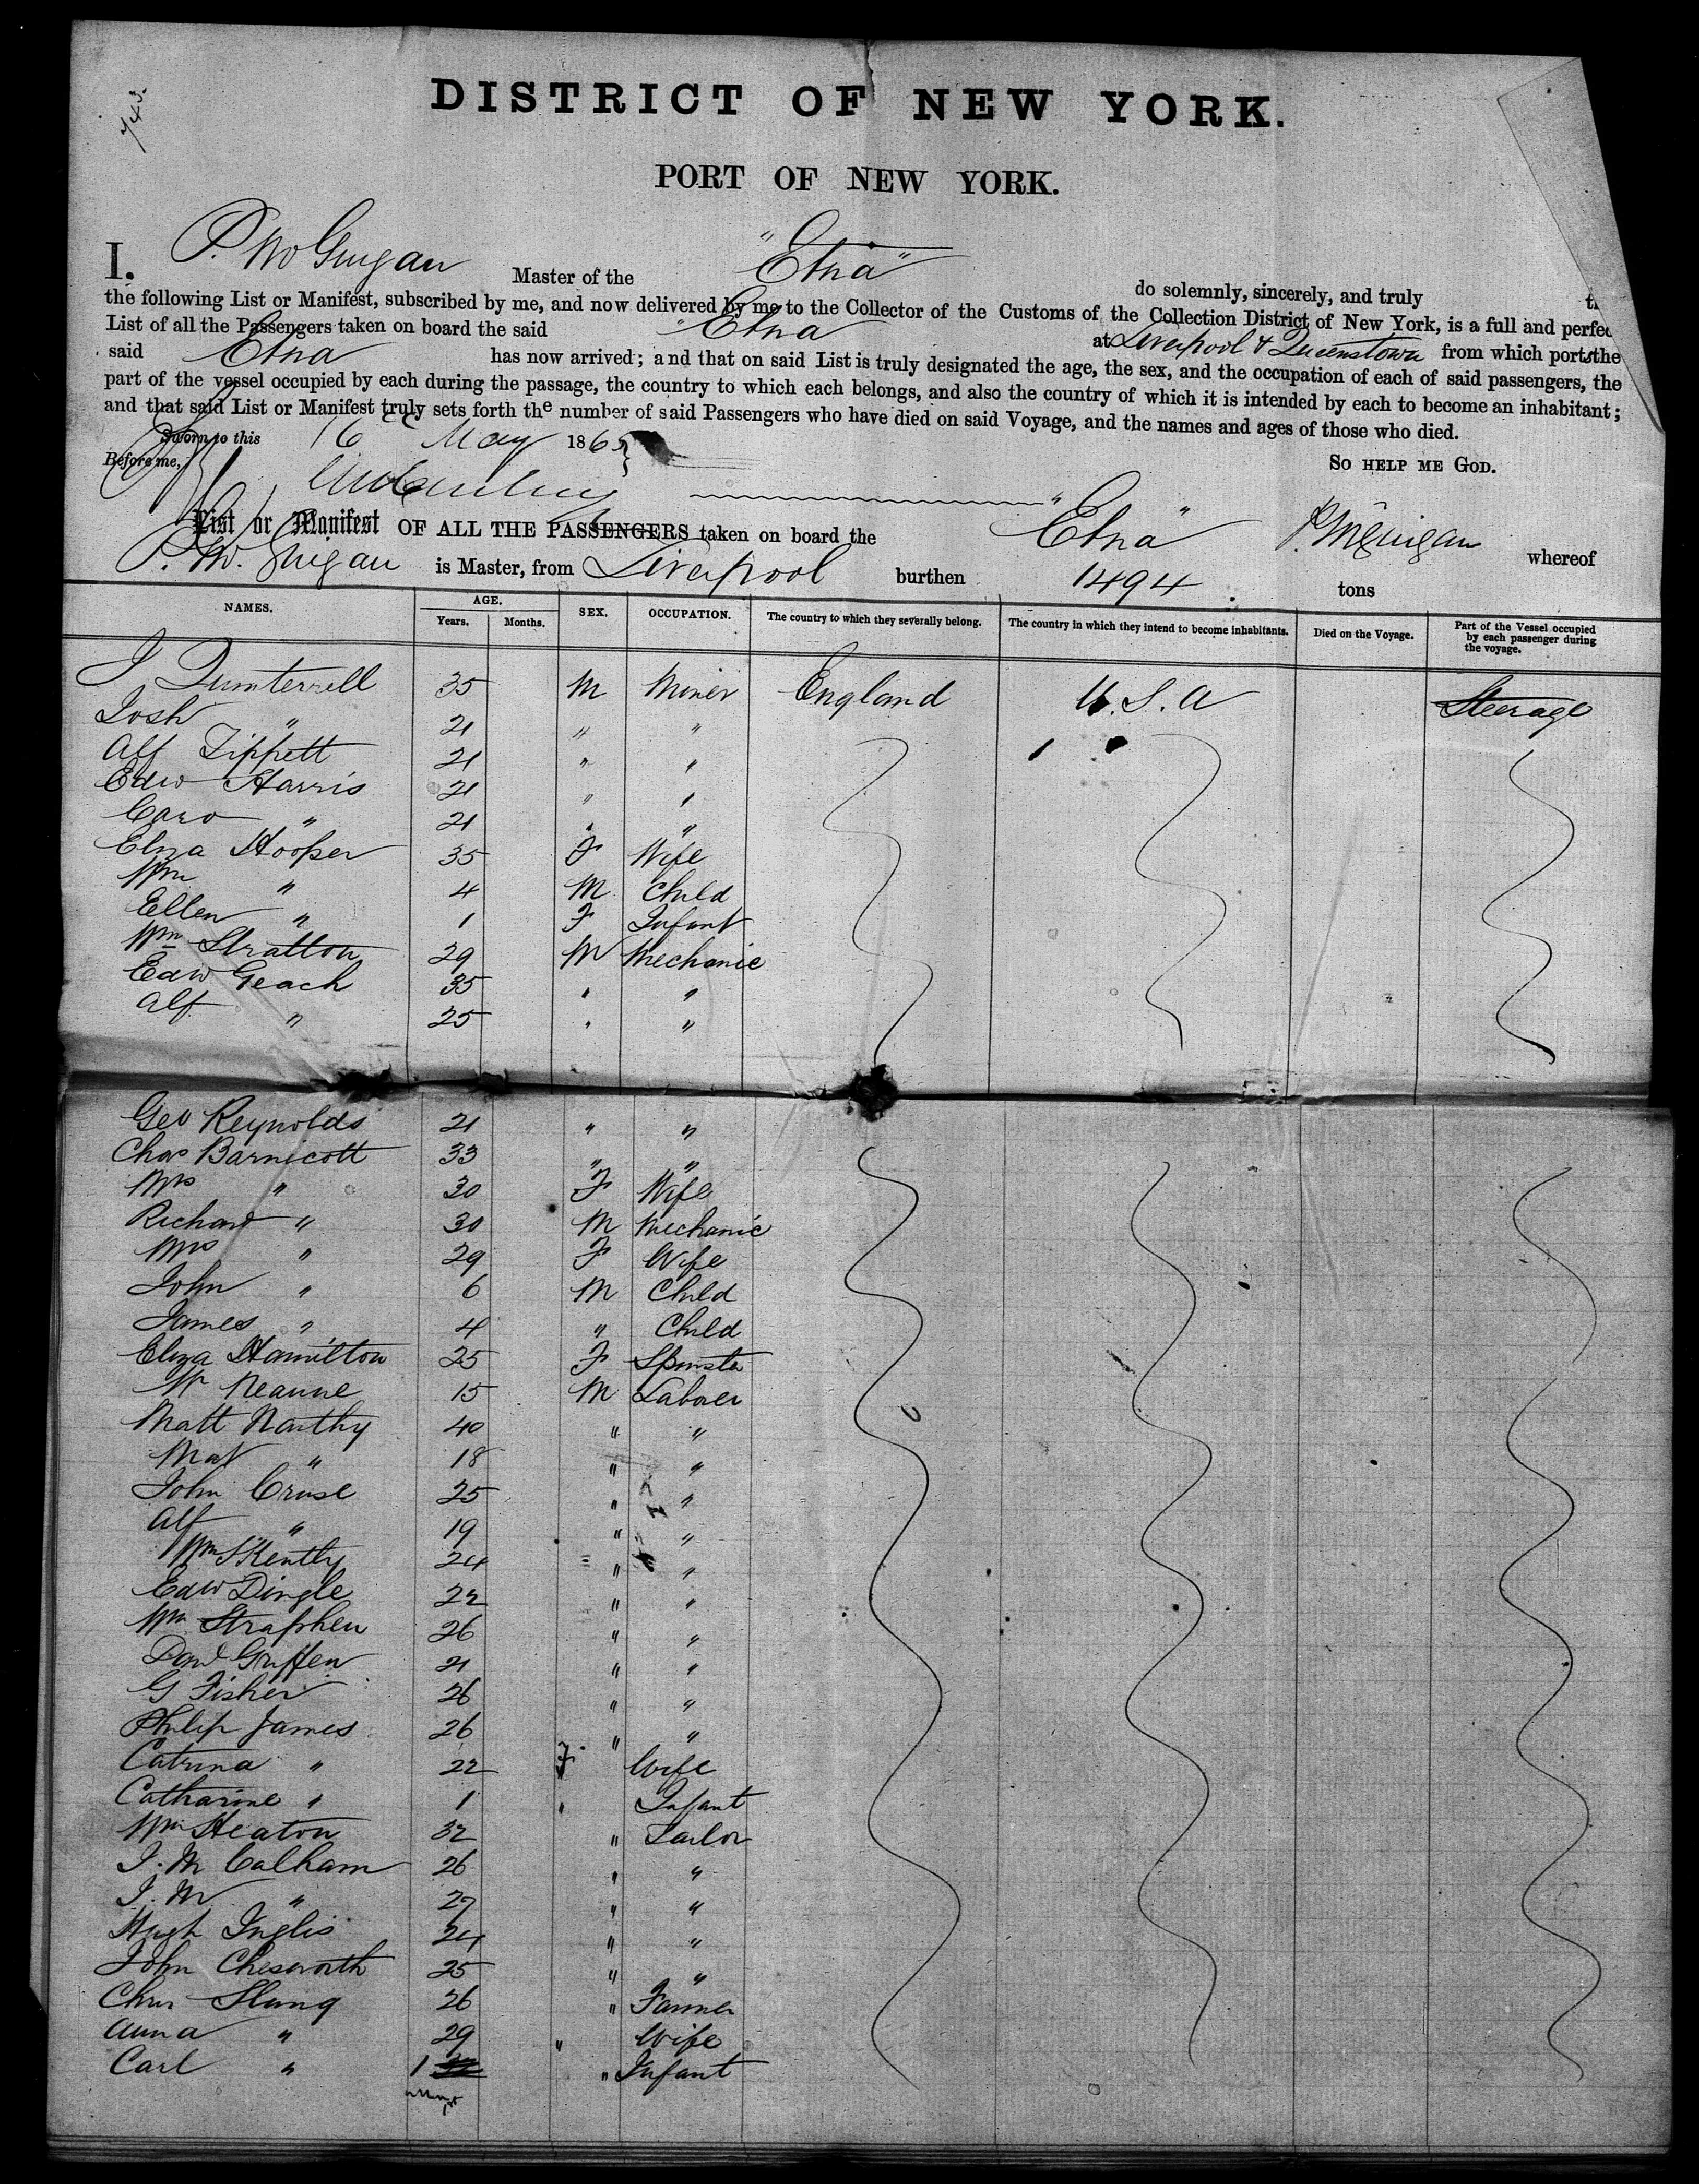 DISTRICT OF NEW YORK.
PORT OF NEW YORK.
I. P. McGuigan Master of the "Etna" do solemnly, sincerely, and truly
the following List or Manifest, subscribed by me, and now delivered by me to the Collector of the Customs of the Collection District of New York, is a full and perfec
List of all the Passengers taken on board the said "Etna at Liverpool & Queenstown from which ports the
said Etna has now arrived; and that on said List is truly designated the age, the sex, and the occupation of each of said passengers, the
part of the vessel occupied by each during the passage, the country to which each belongs, and also the country of which it is intended by each to become an inhabitant;
and that said List or Manifest truly sets forth the number of said Passengers who have died on said Voyage, and the names and ages of those who died.
Sworn to this 16 May 1865
Before me,
SO HELP ME GOD.
List or Manifest OF ALL THE PASSENGERS taken on board the "Etna" P. McGuigan whereof
P. Mc. Guigan is Master, from Liverpool burthen 1494 tons
NAMES. AGE. Years. Months. SEX. OCCUPATION. The country to which they severally belong. The country in which they intend to become inhabitants. Died on the Voyage. Part of the Vessel occupied by each passenger during the voyage.
J 35 M Miner England U.S.A Steerage
Josh " 21 " "
Alf Tippett 21 " "
Edw Harris 21 " "
Caro " 21 " "
Eliza Hooper 35 F Wife
Wm " 4 M Child
Ellen " 1 F Infant
Wm Stratton 29 M Mechanic
Edw Geach 35 " "
Alf " 25 " "
Geo Reynolds 21 " "
Chas Barnicott 33 " "
Mrs " 30 F Wife
Richard " 30 M Mechanic
Mrs " 29 F Wife
John " 6 M Child
James " 4 " Child
Eliza Hamilton 25 F Spinster
W Neaune 15 M Laborer
Matt Narthy 40 " "
Mat " 18 " "
John Cruse 25 " "
Alf " 19 " "
Wm 24 " "
Edw Dingle 22 " "
Wm Straphen 26 " "
Danl Griffen 21 " "
G Fisher 26 " "
Philip James 26 " "
Catrina " 22 F Wife
Catharine " 1 " Infant
Wm Heaton 32 " Tailor
J. M Calham 26 " "
J. M " 27 " "
Hugh Inglis 24 " "
John Chesworth 25 " "
Chr Slang 26 " Farmer
Anna " 29 " Wife
Carl " 1 " Infant